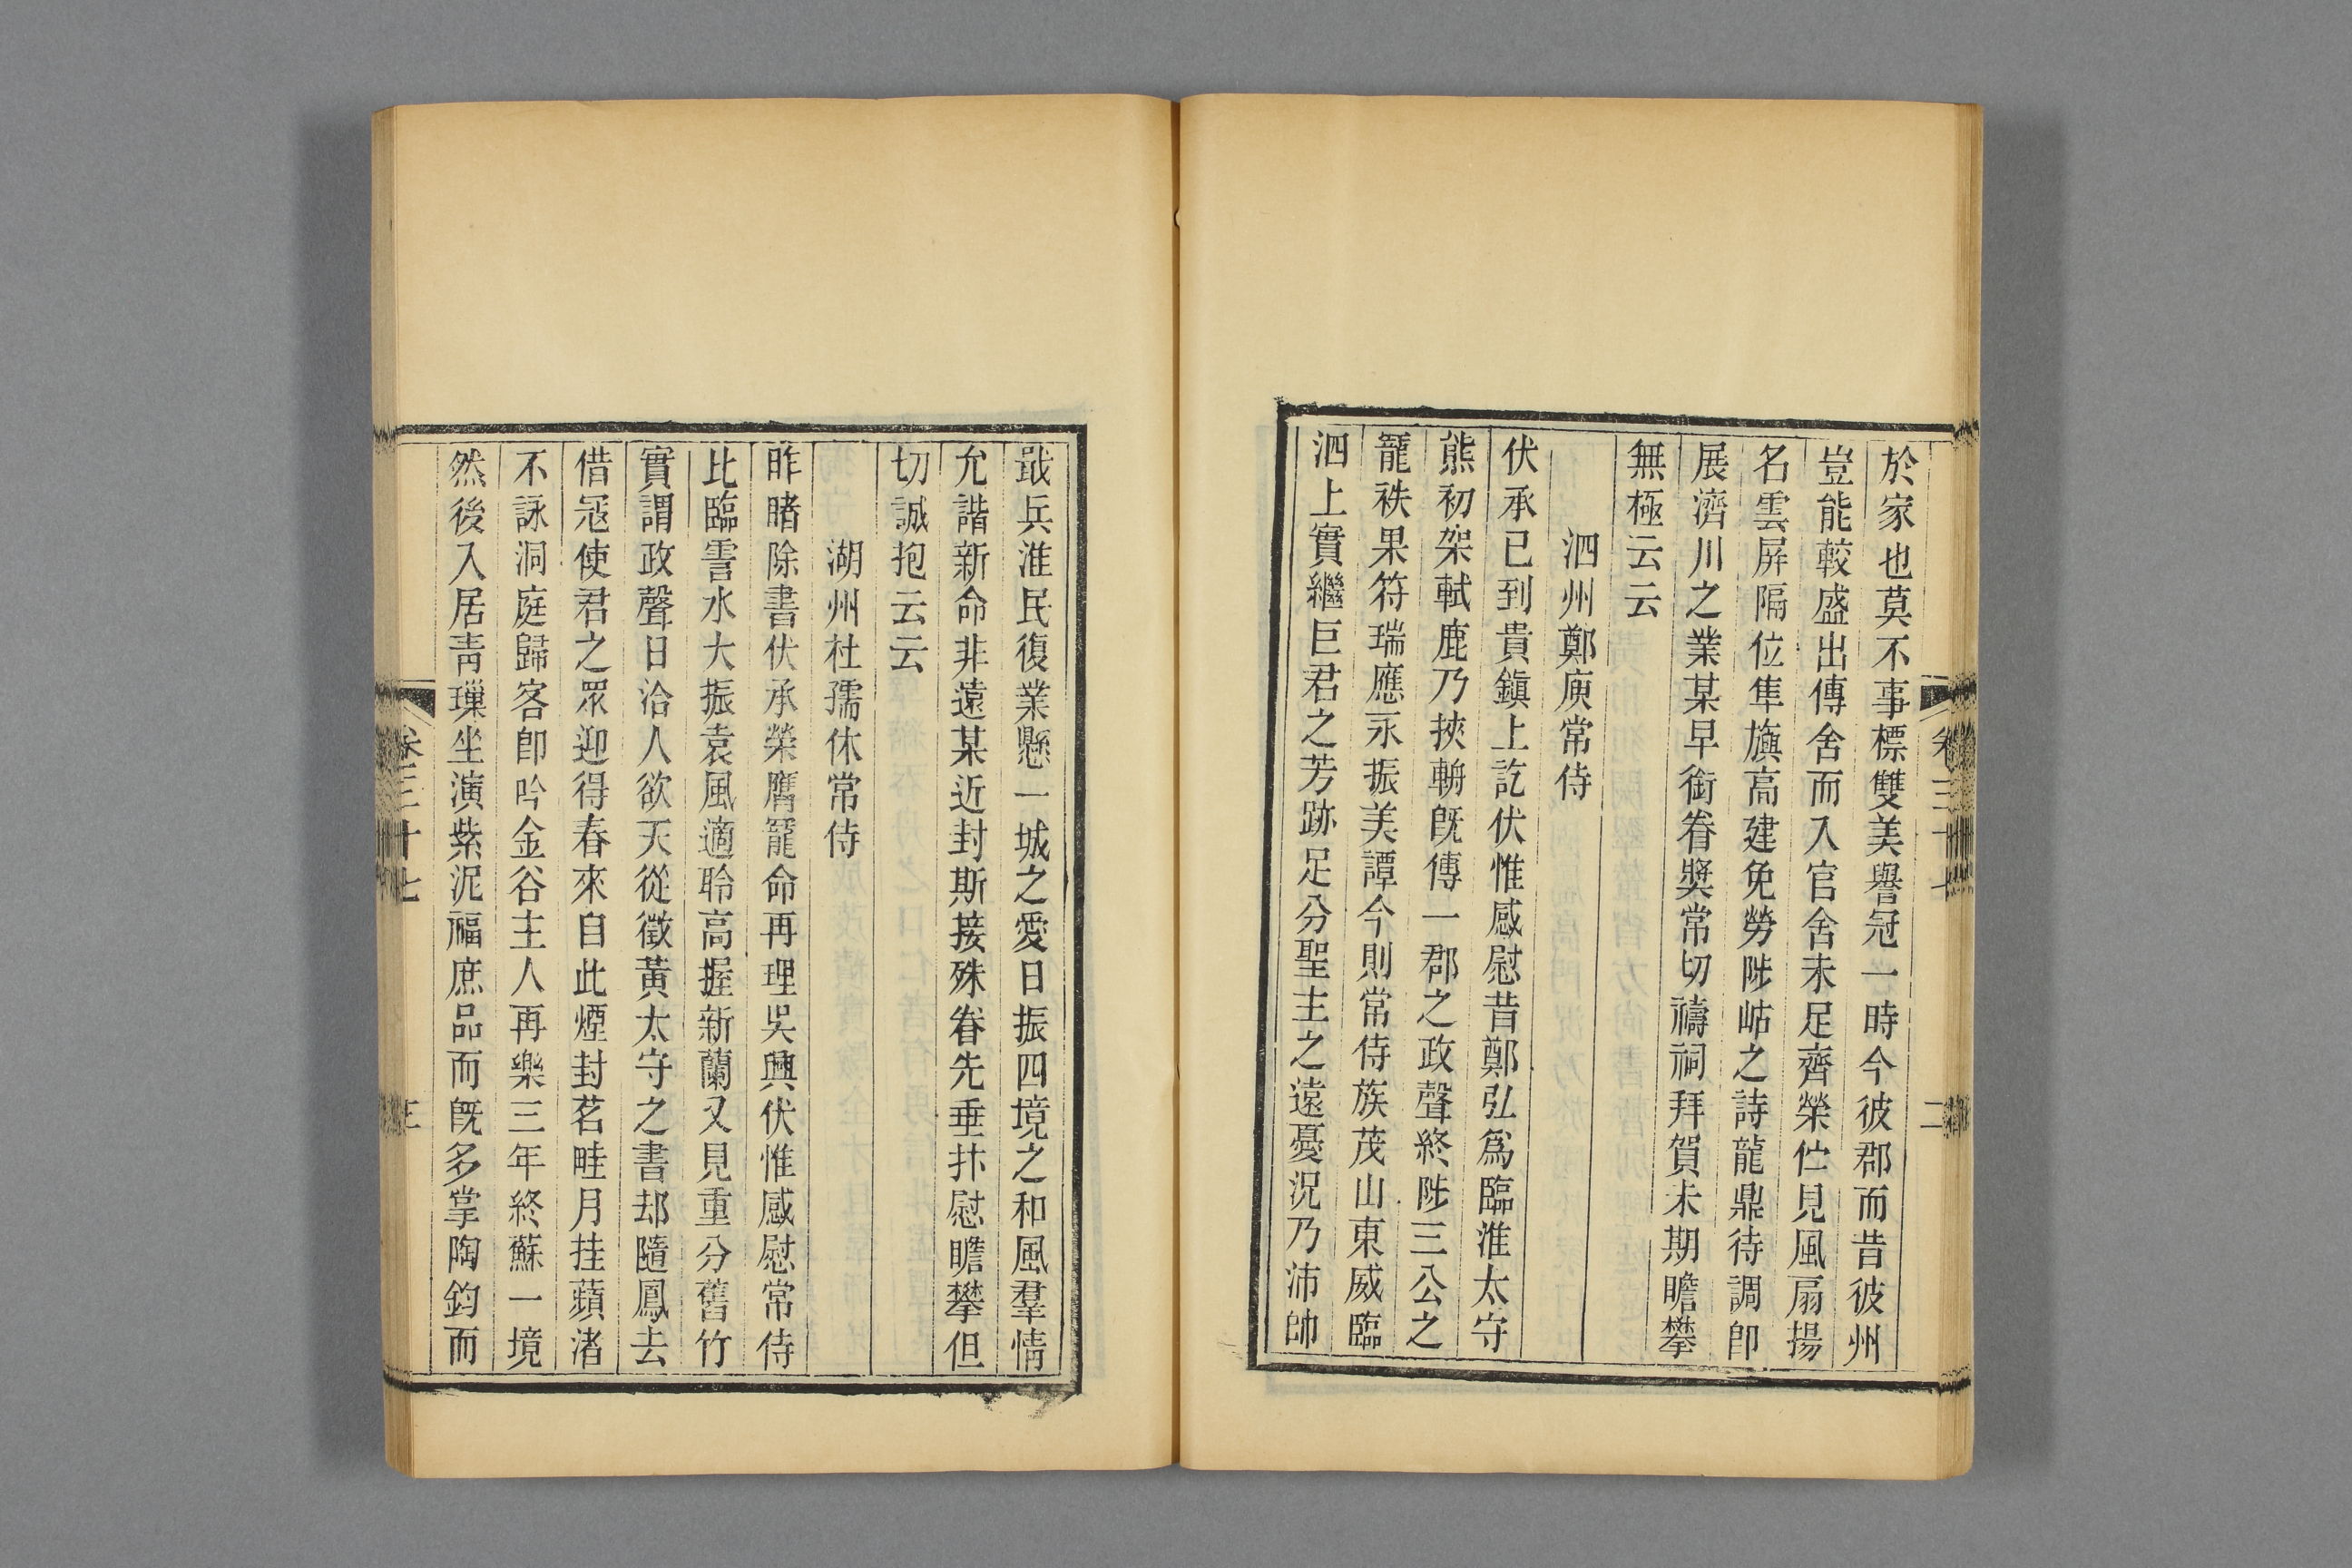 於家也莫不事標雙美譽冠一時今彼郡而昔彼州
豈能較盛出傳舍而入官舍未足齊榮伫見風扇揚
名雲屏隔位隼旟高建免勞陟岵之詩龍鼎待調卽
展濟川之業某早銜眷奬常切禱祠拜賀未期瞻攀
無極云云
泗州鄭庾常侍
伏承已到貴鎭上訖伏惟感慰昔鄭弘爲臨淮太守
熊初架軾鹿乃挾輈旣傳一郡之政聲終陟三公之
寵袟果符瑞應永振美譚今則常侍族茂山東威臨
泗上實繼巨君之芳跡足分聖主之遠憂況乃沛帥
戢兵淮民復業懸一城之愛日振四境之和風羣情
允諧新命非遠某近封斯接殊眷先垂抃慰瞻攀但
切誠抱云云
湖州杜孺休常侍
昨睹除書伏承榮膺寵命再理吳興伏惟感慰常侍
比臨霅水大振袁風適聆高握新蘭又見重分舊竹
實謂政聲日洽人欲天從徵黃太守之書却隨鳳去
借寇使君之眾迎得春來自此煙封茗畦月挂蘋渚
不詠洞庭歸客卽吟金谷主人再樂三年終蘇一境
然後入居靑瑣坐演紫泥福庶品而旣多掌陶鈞而
卷三十七
二
卷三十七
三